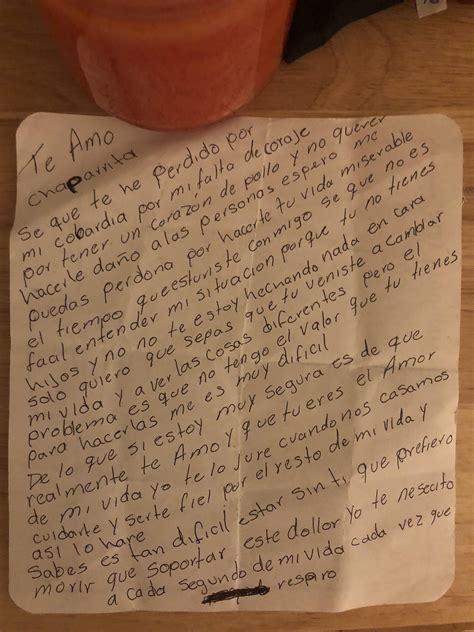 Te Amo
chaparrita
Se que te he Perdido por
mi cobardia por mi falta de coraje
por tener un corazon de pollo y no querer
hacerle daño alas personas espero me
puedas perdona por hacerte tu vida miserable
el tiempo queesturiste conmigo se que no es
facil entender mi situacion porque tu no tienes
hijos y no no te estoy hechando nada en cara
solo quiero que sepas que tu veniste a cambiar
mi vida y a ver las cosas diferentes pero el
problema es que no tengo el valor que tu tienes
para hacerlas me es muy dificil
De lo que si estoy muy segura es de que
realmente te Amo y que tu eres el Amor
de mi vida yo te lo jure cuando nos casamos
cuidarte y serte fiel por el resto de mi vida y
asi lo hare
Sabes es tan dificil estar sin ti, que prefiero
morir que soportar este dollor yo te nesecito
a cada segundo de mi vida cada vez que
respiro